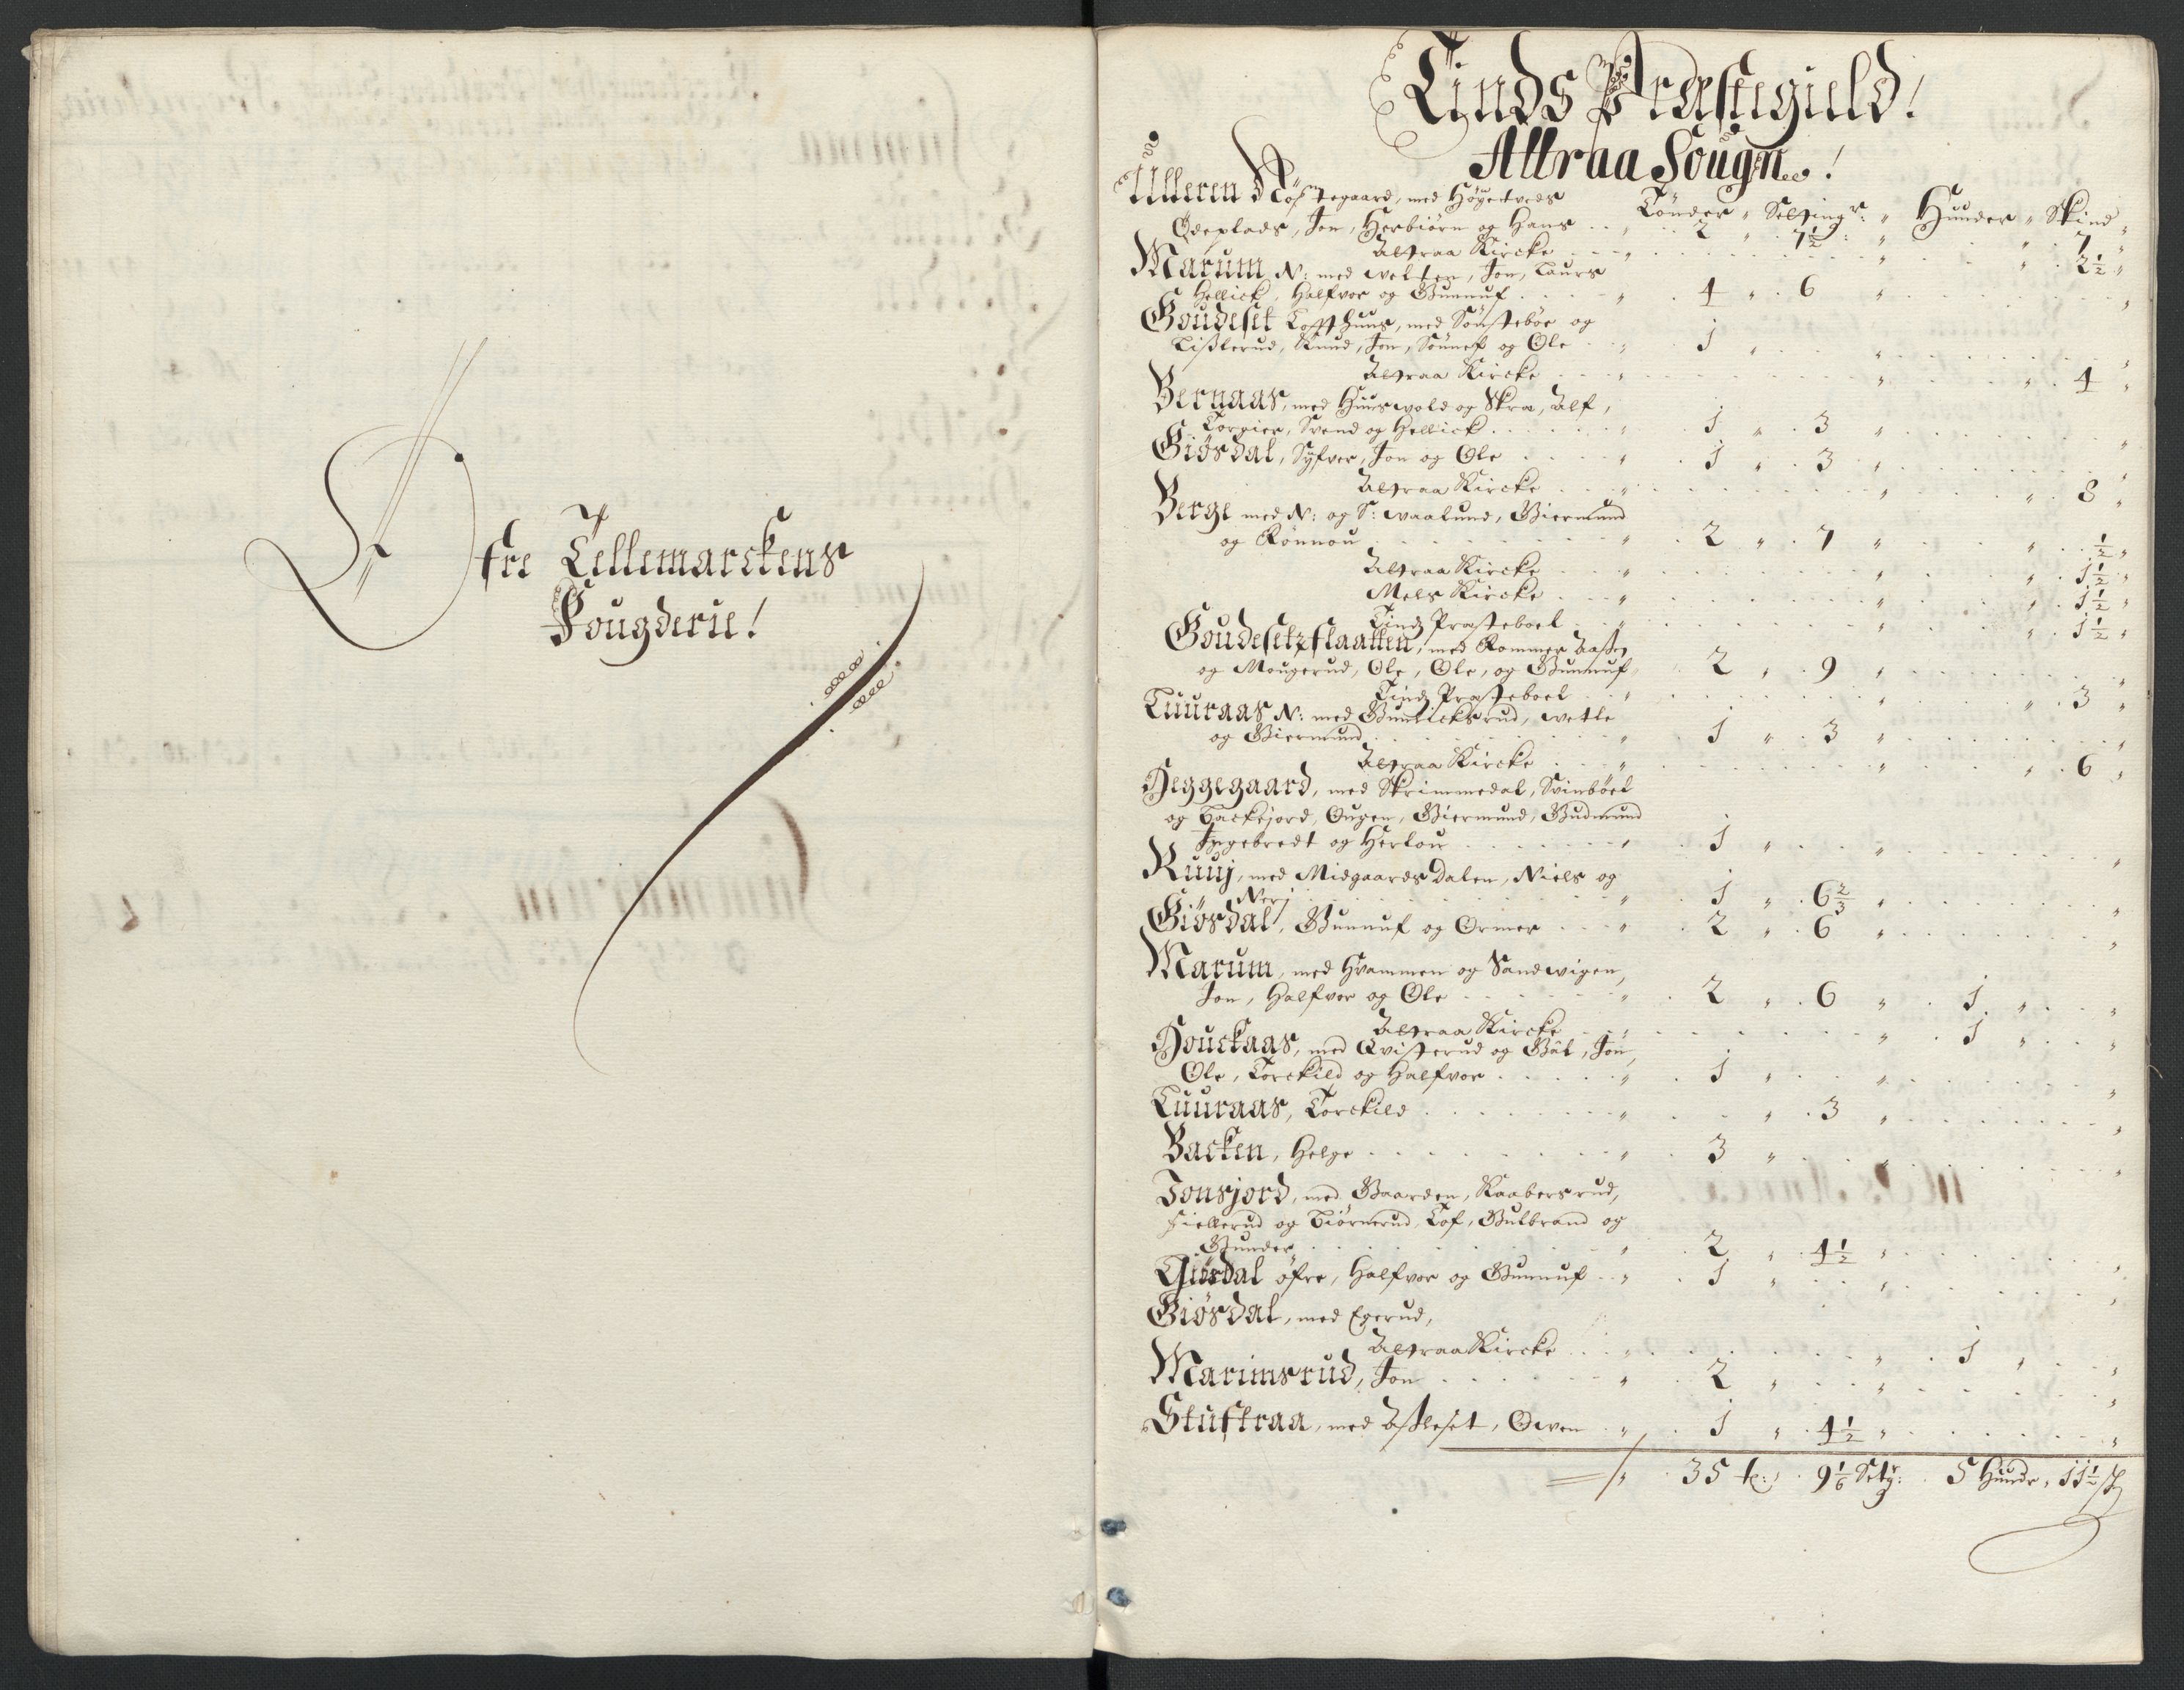 Øfre Tellemarckens
Fougderie!
Tinds Præstegield!
Attraa Sougn!
Ulleren Røstegaard, med Høgetveds
Tønder " Setting: " Huuder " Skind "
Ødeplads, Jon, Herbiørn og Hans . . " . . 2 " . 7½ " . . " . 7 "
Attraa Kircke . . " . . " . . " . 2½ "
Marum N: med Wetten, Jon, Laurs
Hellick, Halfvor og Gunnuf . . " . 4 " . 6 " . . "
Goudeset Loffthuus, med Sønstebøe og
Listerud, Knud, Jon, Sønnef og Ole . . " . 1 " . . " . . "
Attraa Kircke . . " . . " . . " . 4 "
Bernaas, med Huuswold og Skra, Alf,
Torgier, Svend og Hellick . . " . 1 " . 3 " . . "
Giøsdal, Syfver, Jon og Ole . . " . 1 " . 3 " . . "
Attraa Kircke . . " . . " . . " . 8 "
Berge med N: og S: Waalund, Giermund
og Rønnou . . " . 2 " . 7 " . . " . ½ "
Attraa Kircke . . " . . " . . " . 1½ "
Mels Kircke . . " . . " . . " . 1½ "
Tindz Præsteboel . . " . . " . . " . 1½ "
Goudesetzslaatten, med Rommer Aasen
og Mougerud, Ole, Ole, og Gunnuf " . 2 " . 9 " . . "
Tindz Præsteboel . . " . . " . . " . 3 "
Luuraas N: med Gunlicksrud, Wetle
og Giermund . . " . 1 " . 3 " . . "
Attraa Kircke . . " . . " . . " . 6 "
Heggegaard, med Skrimmedal, Svinbøel
og Backejord, Ougen, Giermund, Gudmund
Ingebredt og Herlou . . " . 1 " . . " . . "
Ruuj, med Midgaards Dalen, Niels og
Nerj . . " . 1 " . 6⅔ " . . "
Giøsdal, Gunnuf og Ormer . . " . 2 " . 6 " . . "
Marum, med Hvammen og Sandwigen,
Jon, Halfvor og Ole . . " . 2 " . 6 " . 1 " . . "
Attraa Kircke . . " . . " . 1 " . . "
Houckaas, med Qvisterud og Bøl, Jon,
Ole, Torckild og Halfvor . . " . 1 " . . " . . "
Luuraas, Torckild . . " . . " . 3 " . . "
Backen, Helge . . " . 3 " . . " . . "
Jonsjord, med Gaarden, Raabersrud,
Fiellerud og Biørnerud, Tof, Gulbrand og
Gunder . . " . 2 " . 4½ " . . "
Giøsdal øfre, Halfvor og Gunnuf . . " . 1 " . . " . . "
Giøsdal, med Egerud,
Attraa Kircke . . " . . " . 1 " . . "
Marimsrud, Jon . . " . 2 " . . " . . "
Stuftraa, med Asleset, Owen . " . 1 " . 4½ " . . "
" . 35 t: . 9⅙ Set: . 5 Huuder . 11½ sk